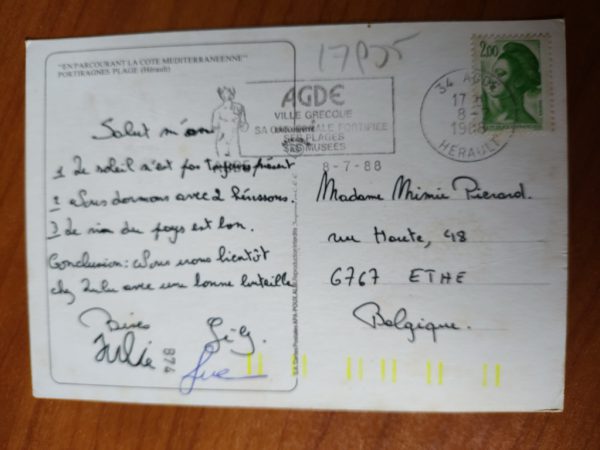 "EN PARCOURANT LA COTE MEDITERRANEENNE"
PORTIRAGNES PLAGE (Hérault)
Salut m'ami
1 Le soleil n'est pas présent
2 Nous dormons avec 2 hérissons.
3 Le vin du pays est bon.
Conclusion: Nous irons bientôt
chez Lulu avec une bonne bouteille
Bises
Julie
Gi-G.
Luc
874
2,00
AGDE
VILLE GRECQUE
SA CATHEDRALE FORTIFIEE
SES PLAGES
SES MUSEES
34 AGDE
17 H
8-7
1988
HERAULT
8-7-88
Madame Mimie Pierard.
rue Haute, 48
6767 ETHE
Belgique.